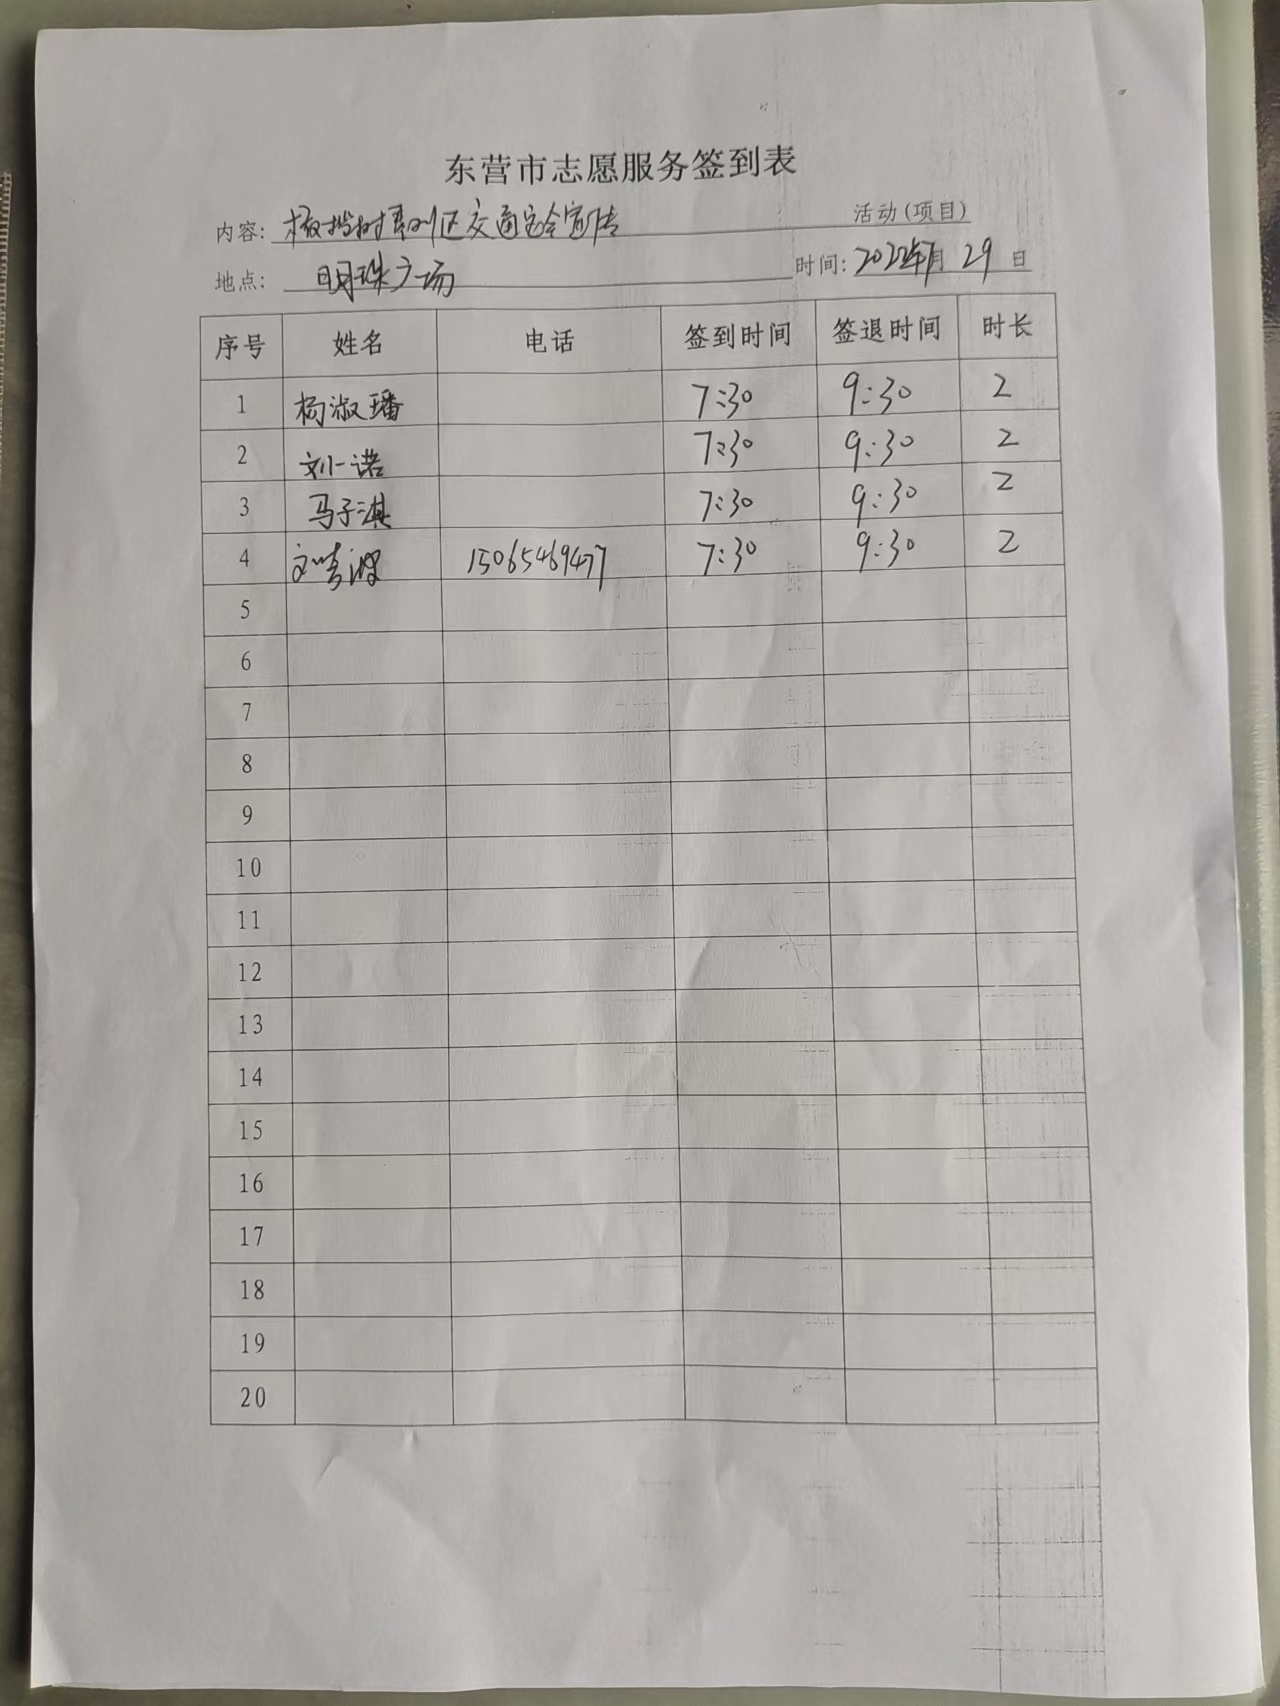 东营市志愿服务签到表
内容: 橄榄树 区交通安全宣传 活动(项目)
地点: 明珠广场 时间: 2022年7月29日
序号 姓名 电话 签到时间 签退时间 时长
1 杨淑璠 7:30 9:30 2
2 刘一诺 7:30 9:30 2
3 马子淇 7:30 9:30 2
4 15065469477 7:30 9:30 2
5
6
7
8
9
10
11
12
13
14
15
16
17
18
19
20